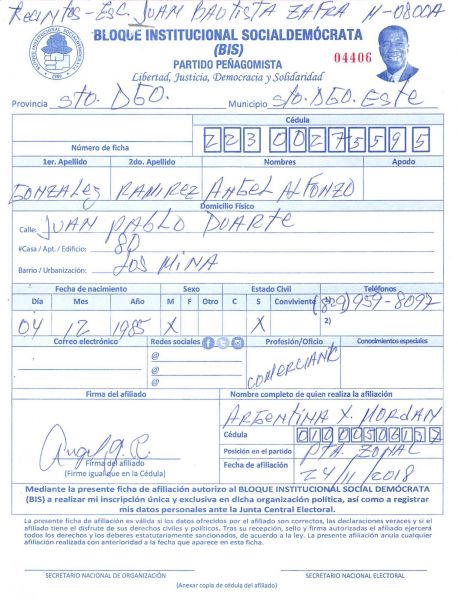 Recintos - Esc. Juan Bautista Zafra N-0800A
BLOQUE INSTITUCIONAL SOCIALDEMÓCRATA
(BIS)
PARTIDO PEÑAGOMISTA
04406
Libertad, Justicia, Democracia y Solidaridad
Provincia Sto. DGO. Municipio Sto. DGO. ESTE
Cédula
Número de ficha 223 0027559 5
1er. Apellido 2do. Apellido Nombres Apodo
GONZALEZ RAMIREZ ANGEL ALFONZO
Domicilio Físico
Calle: JUAN PABLO DUARTE
#Casa / Apt. / Edificio: 80
Barrio / Urbanización: LOS MINA
Fecha de nacimiento Sexo Estado Civil Teléfonos
Día Mes Año M F Otro C S Conviviente 1) (829) 959-8097
04 12 1985 X X 2)
Correo electrónico Redes sociales Profesión/Oficio Conocimientos especiales
@
@
@
COMERCIANTE
Firma del afiliado Nombre completo de quien realiza la afiliación
ARGENTINA X. MORDAN
Cédula
Angel G. R. Posición en el partido PTA. ZONAL
Firma del afiliado
(Firme igual que en la Cédula)
Fecha de afiliación 24/11/2018
Mediante la presente ficha de afiliación autorizo al BLOQUE INSTITUCIONAL SOCIAL DEMÓCRATA
(BIS) a realizar mi inscripción única y exclusiva en dicha organización política, así como a registrar
mis datos personales ante la Junta Central Electoral.
La presente ficha de afiliación es válida si los datos ofrecidos por el afiliado son correctos, las declaraciones veraces y si el
afiliado tiene el disfrute de sus derechos civiles y políticos. Tras su recepción, sello y firma autorizadas el afiliado ejercerá
todos los derechos y los deberes estatutariamente sancionados, de acuerdo a la ley. La presente afiliación anula cualquier
afiliación realizada con anterioridad a la fecha que aparece en esta ficha.
SECRETARIO NACIONAL DE ORGANIZACIÓN SECRETARIO NACIONAL ELECTORAL
(Anexar copia de cédula del afiliado)